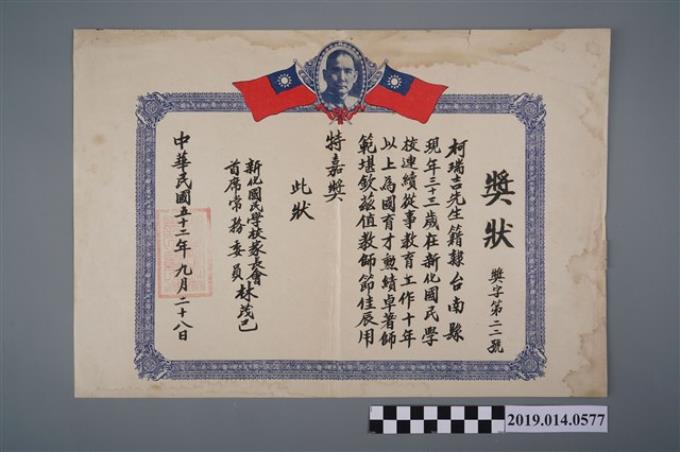 獎狀
獎字第二二號
柯瑞吉先生籍隸台南縣
現年三十三歲在新化國民學
校連續從事教育工作十年
以上為國育才勲績卓著師
範堪欽茲值教師節佳辰用
特嘉獎
此狀
新化國民學校家長會
首席常務委員林茂己
中華民國五十二年九月二十八日
2019.014.0577